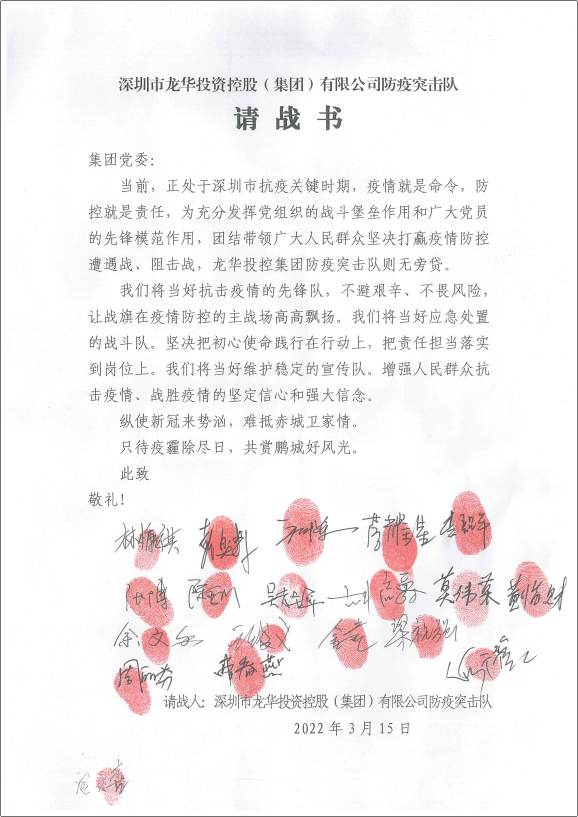 深圳市龙华投资控股（集团）有限公司防疫突击队
请战书
集团党委：
当前，正处于深圳市抗疫关键时期，疫情就是命令，防
控就是责任，为充分发挥党组织的战斗堡垒作用和广大党员
的先锋模范作用，团结带领广大人民群众坚决打赢疫情防控
遭遇战、阻击战，龙华投控集团防疫突击队则无旁贷。
我们将当好抗击疫情的先锋队，不避艰辛、不畏风险，
让战旗在疫情防控的主战场高高飘扬。我们将当好应急处置
的战斗队。坚决把初心使命践行在行动上，把责任担当落实
到岗位上。我们将当好维护稳定的宣传队。增强人民群众抗
击疫情、战胜疫情的坚定信心和强大信念。
纵使新冠来势汹，难抵赤城卫家情。
只待疫霾除尽日，共赏鹏城好风光。
此致
敬礼！
莫伟荣
余文
请战人：深圳市龙华投资控股（集团）有限公司防疫突击队
2022年3月15日